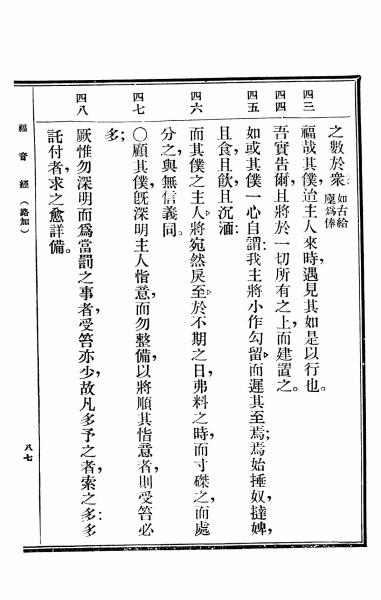 之數於衆如古給廩爲俸
四三
福哉其僕迨主人來時遇見其如是以行也。
四四
吾實告爾且將於一切所有之上而建置之。
四五
如或其僕一心自謂我主將小作勾留而遲其至焉;焉始捶奴,撻婢,
且食且飮且沉湎:
四六
而其僕之主人將宛然戾至於不期之日,弗料之時,而寸磔之,而處
分之,與無信義同。
四七
〇顧其僕,旣深明主人恉意,而勿整備,以將順其恉意者,則受笞必
多;
四八
厥惟勿深明而爲當罰之事者,受笞亦少,故凡多予之者,索之多:多
託付者,求之愈詳備。
福音經(路加)
八七